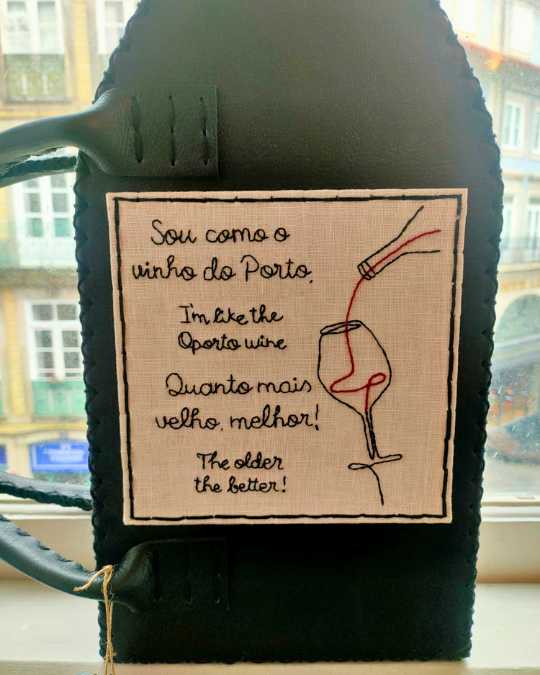 Sou como o
vinho do Porto,
I'm like the
Oporto wine
Quanto mais
velho, melhor!
The older
the better!